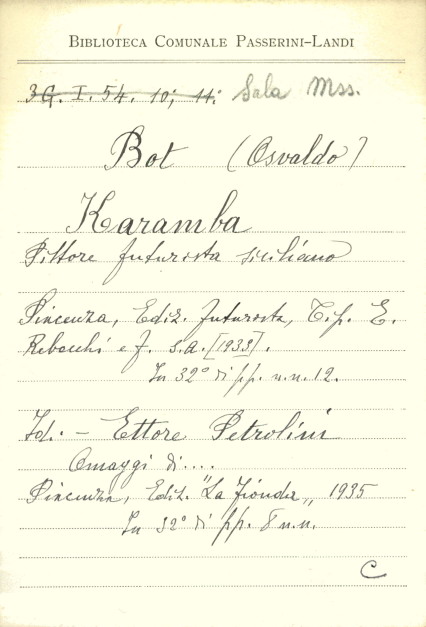 BIBLIOTECA COMUNALE PASSERINI-LANDI
3G. I. 54. 10; 11: Sala Mss.
Bot (Osvaldo)
Karamba
Pittore futurista siciliano
Piacenza, Ediz. futurista, Tip. E.
Rebecchi e f. s.a. [1933].
In 32° di pp. n.n. 12.
Id. - Ettore Petrolini
Omaggi di....
Piacenza, Ediz. "La Fionda„ 1935
In 32° di pp. 8 n.n.
C